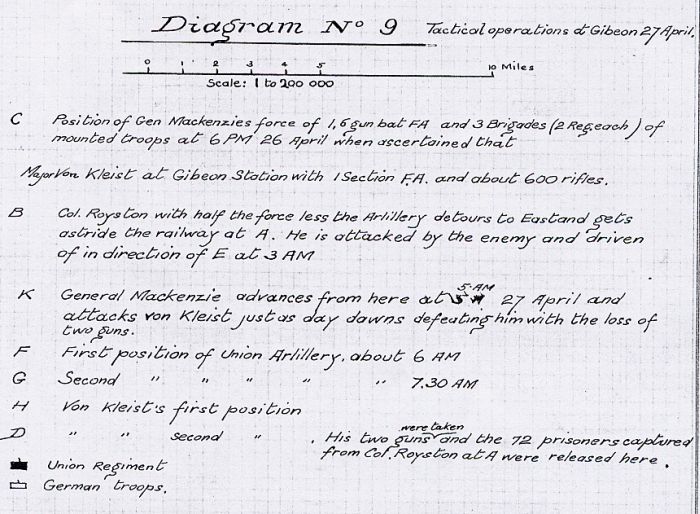 Diagram No 9 Tactical operations at Gibeon 27 April.
0 1 2 3 4 5 10 Miles
Scale: 1 to 200 000
C Position of Gen Mackenzies force of 1, 6 gun bat FA and 3 Brigades (2 Reg. each) of
mounted troops at 6 PM 26 April when ascertained that
Major Von Kleist at Gibeon Station with 1 Section F.A. and about 600 rifles.
B Col. Royston with half the force less the Artillery detours to East and gets
astride the railway at A. He is attacked by the enemy and driven
of in direction of E at 3 AM
5 AM
K General Mackenzie advances from here at 27 April and
attacks von Kleist just as day dawns defeating him with the loss of
two guns.
F First position of Union Artillery, about 6 AM
G Second " " " " " 7.30 AM
H Von Kleist's first position
were taken
D " " second " . His two guns and the 72 prisoners captured
from Col. Royston at A were released here.
Union Regiment
German troops.